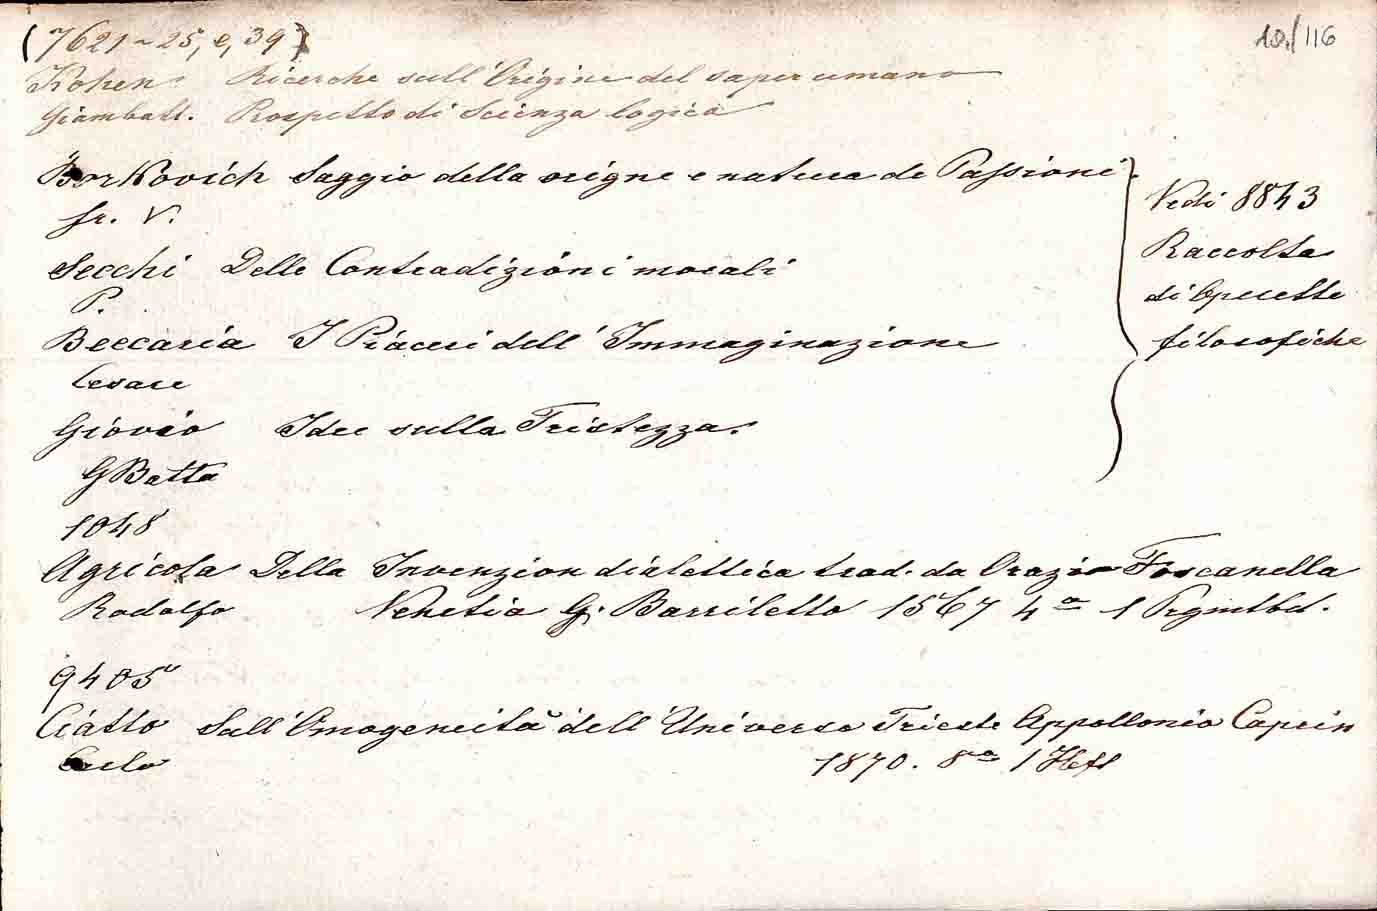 10./116
(7621-25, e, 39)
Kohen Ricerche sull'Origine del saper umano
Giambatt. Prospetto di Scienza logica
Borkovich Saggio della origne e natura de Passioni
fr. V.
Secchi Delle Contradizioni morali
P.
Beccaria I Piaceri dell' Immaginazione
Cesare
Giovio Idee sulla Tristezza.
GBatta
Vedi 8843
Raccolta
di Operette
filosofiche
1048
Agricola Della Invenzion dialettica trad. da Orazio Toscanella
Rodolfo Venetia G. Bariletto 1567 4º 1 Prgmtbd.
9405
Ciatto Sull'Omogeneità dell'Universo Trieste Appollonio Caprin
Carlo 1870. 8º 1 Heft